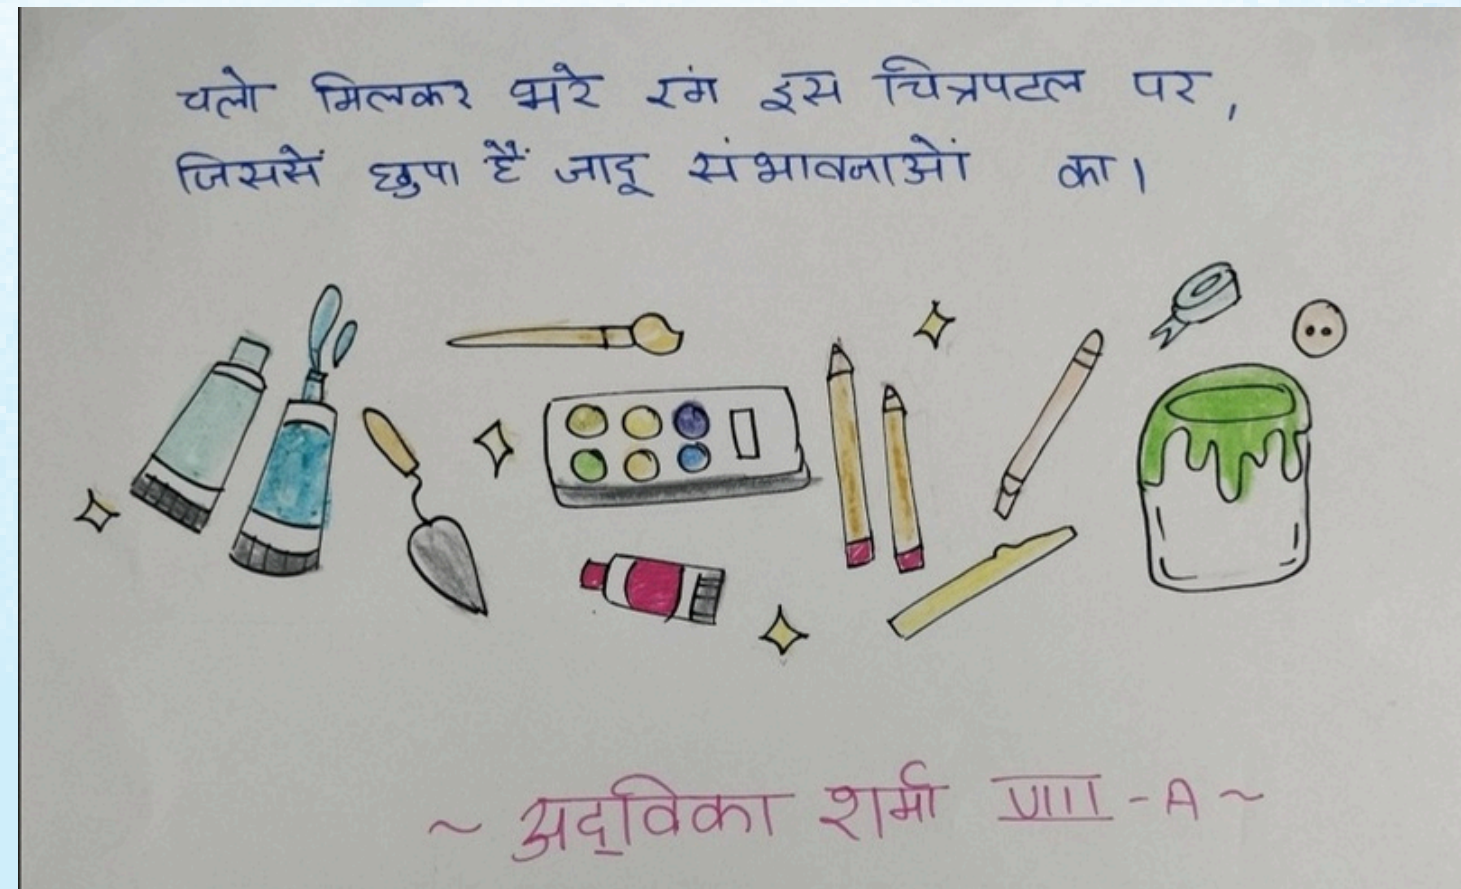 चलो मिलकर भरे रंग इस चित्रपटल पर,
जिससें छुपा हैं जादू संभावनाओं का।
~ अद्विका शर्मा VIII - A ~